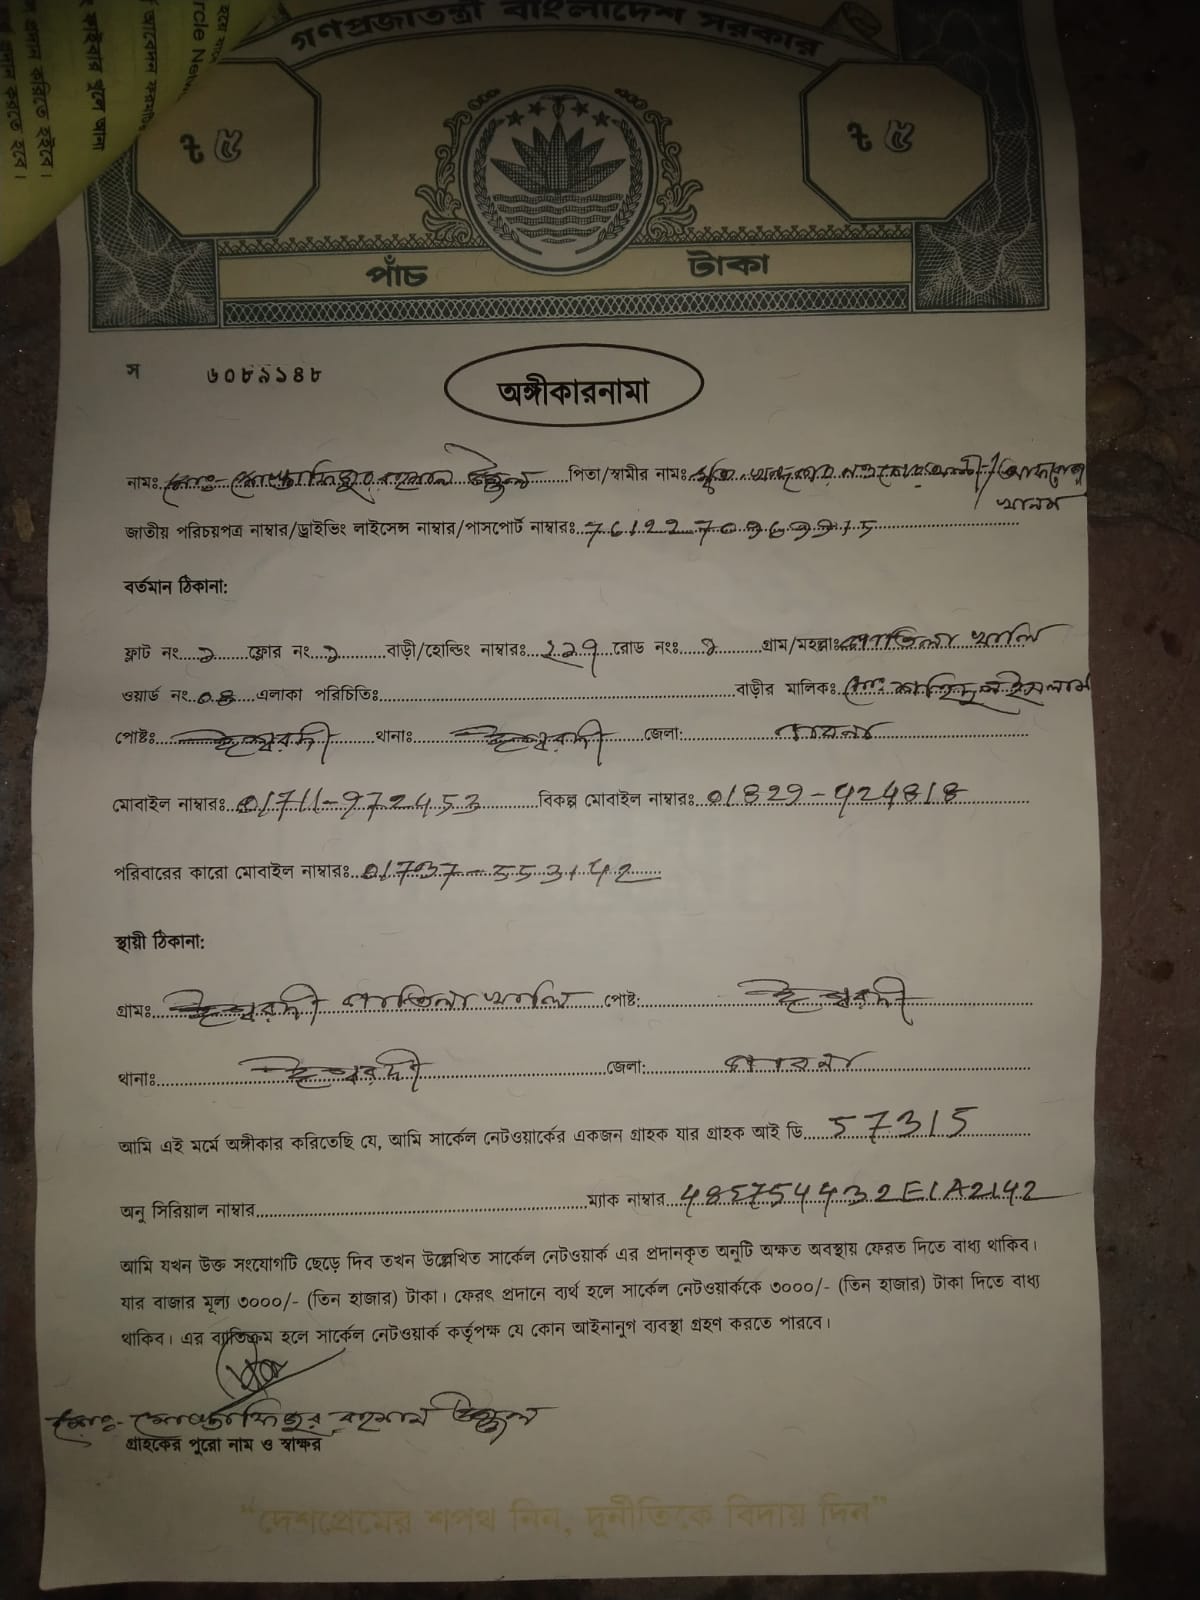 গণপ্রজাতন্ত্রী বাংলাদেশ সরকার
৳ ৫ ৳ ৫
পাঁচ টাকা
স ৬০৮৯১৪৮
অঙ্গীকারনামা
নামঃ মোঃ- মোস্তাফিজুর রহমান উজ্জ্বল পিতা/স্বামীর নামঃ মৃত
খানম
জাতীয় পরিচয়পত্র নাম্বার/ড্রাইভিং লাইসেন্স নাম্বার/পাসপোর্ট নাম্বারঃ
বর্তমান ঠিকানা:
ফ্লাট নং ফ্লোর নং বাড়ী/হোল্ডিং নাম্বারঃ রোড নংঃ গ্রাম/মহল্লাঃ পাতিলা খালি
ওয়ার্ড নং ০৪ এলাকা পরিচিতিঃ বাড়ীর মালিকঃ মোঃ ইসলাম
পোষ্টঃ ঈশ্বরদী থানাঃ ঈশ্বরদী জেলা: পাবনা
মোবাইল নাম্বারঃ 01711-972453 বিকল্প মোবাইল নাম্বারঃ
পরিবারের কারো মোবাইল নাম্বারঃ
স্থায়ী ঠিকানা:
গ্রামঃ ঈশ্বরদী পাতিলা খালি পোষ্ট: ঈশ্বরদী
থানাঃ ঈশ্বরদী জেলা: পাবনা
আমি এই মর্মে অঙ্গীকার করিতেছি যে, আমি সার্কেল নেটওয়ার্কের একজন গ্রাহক যার গ্রাহক আই ডি 57315
অনু সিরিয়াল নাম্বার ম্যাক নাম্বার
আমি যখন উক্ত সংযোগটি ছেড়ে দিব তখন উল্লেখিত সার্কেল নেটওয়ার্ক এর প্রদানকৃত অনুটি অক্ষত অবস্থায় ফেরত দিতে বাধ্য থাকিব।
যার বাজার মূল্য ৩০০০/- (তিন হাজার) টাকা। ফেরৎ প্রদানে ব্যর্থ হলে সার্কেল নেটওয়ার্ককে ৩০০০/- (তিন হাজার) টাকা দিতে বাধ্য
থাকিব। এর ব্যতিক্রম হলে সার্কেল নেটওয়ার্ক কর্তৃপক্ষ যে কোন আইনানুগ ব্যবস্থা গ্রহণ করতে পারবে।
মোঃ- মোস্তাফিজুর রহমান উজ্জ্বল
গ্রাহকের পুরো নাম ও স্বাক্ষর
"দেশপ্রেমের শপথ নিন, দুর্নীতিকে বিদায় দিন"